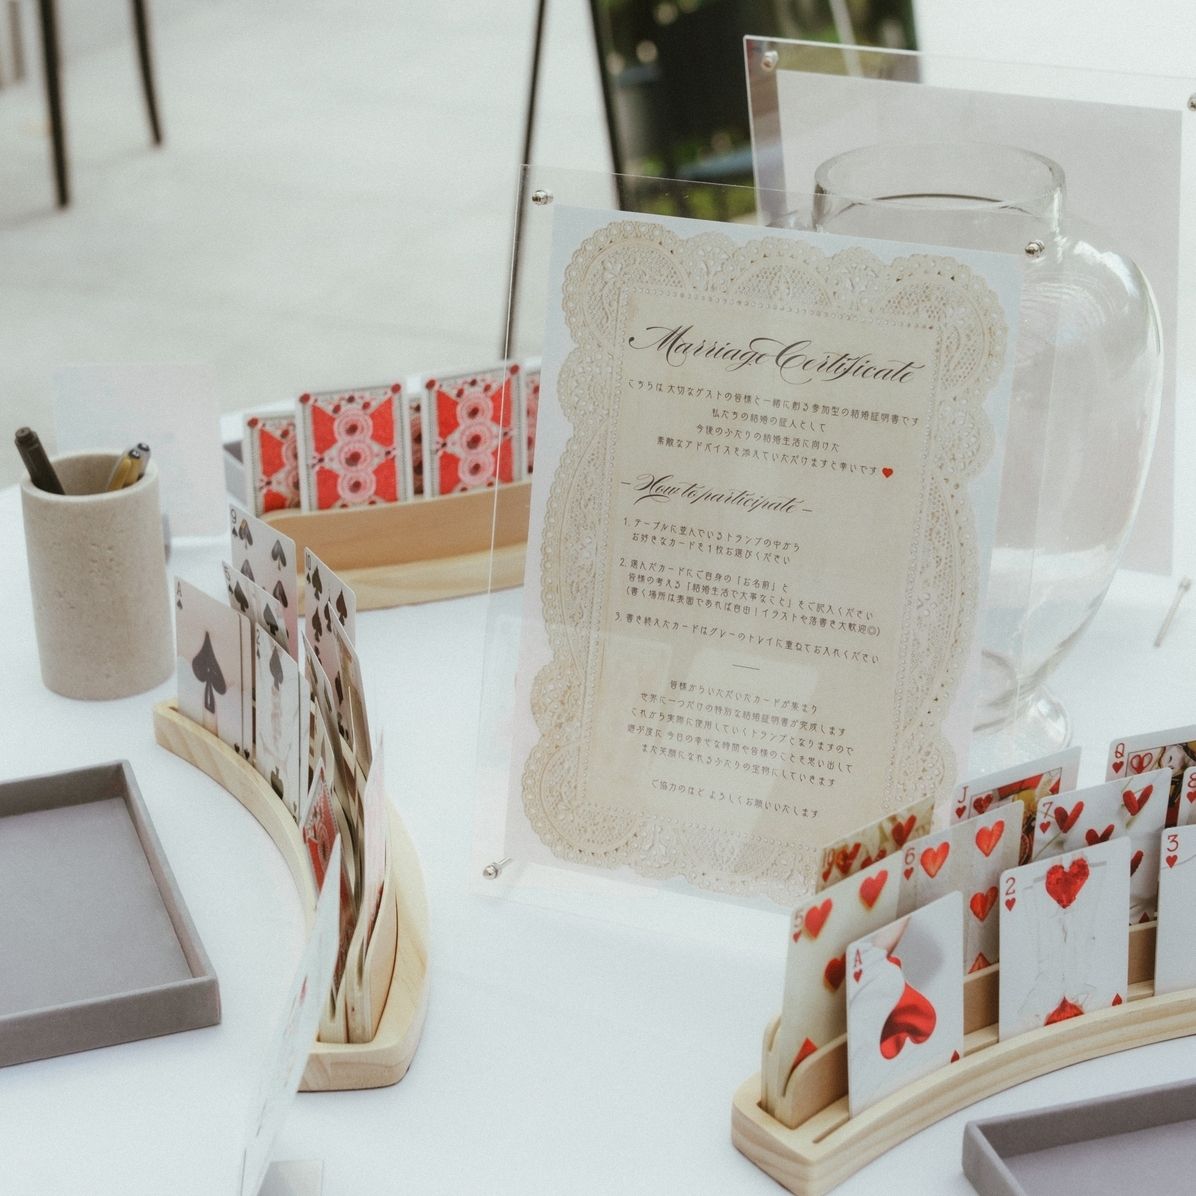 Marriage Certificate
こちらは 大切なゲストの皆様と一緒に創る参加型の結婚証明書です
私たちの結婚の証人として
今後のふたりの結婚生活に向けた
素敵なアドバイスを添えていただけますと幸いです♥
- How to participate -
1. テーブルに並んでいるトランプの中から
お好きなカードを1枚お選びください
2. 選んだカードにご自身の「お名前」と
皆様の考える「結婚生活で大事なこと」をご記入ください
(書く場所は表面であれば自由!イラストや落書き大歓迎◎)
3. 書き終えたカードはグレーのトレイに重ねてお入れください
皆様からいただいたカードが集まり
世界に一つだけの特別な結婚証明書が完成します
これから実際に使用していくトランプとなりますので
遊ぶ度に 今日の幸せな時間や皆様のことを思い出して
また笑顔になれるふたりの宝物にしていきます
ご協力のほど よろしくお願いいたします
9
A
10
J
Q
5
6
7
8
A
2
3